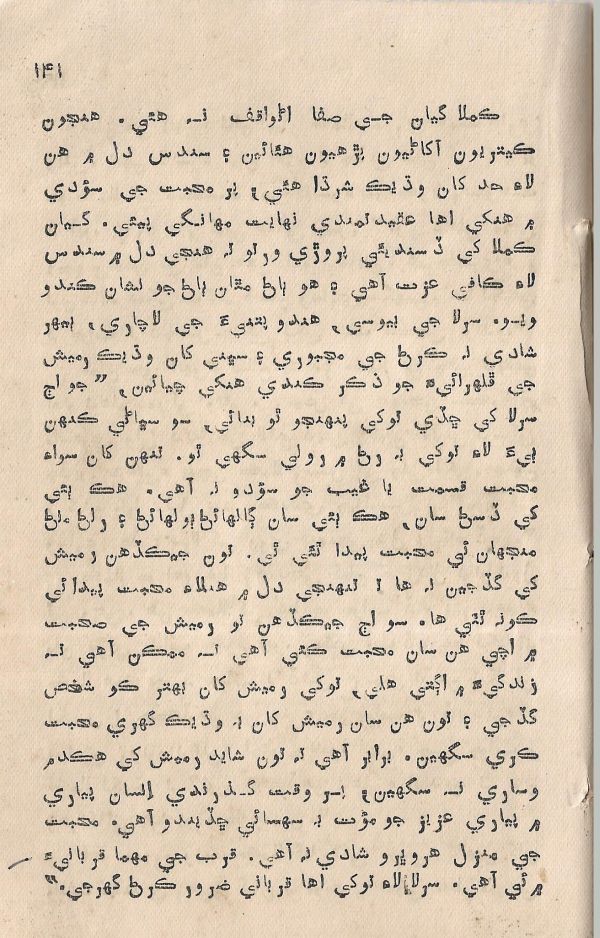 ۱۴۱
ڪملا گيان جي صفا اڻواقف نہ هئي. هنجون
ڪيتريون آکاڻيون پڙهيون هئائين ۽ سندس دل ۾ هن
لاءِ حد کان وڌيڪ شرڌا هئي، پر محبت جي سؤدي
۾ هنکي اها عقيدتمندي نهايت مهانگي پيئي. گيان
ڪملا کي ڏسندي ئي پروڙي ورتو تہ هنجي دل ۾ سندس
لاءِ ڪافي عزت آهي ۽ هو پاڻ مٿان پاڻ جو نشان ڪندو
ويو. سرلا جي بيوسي، هندو پتنيءَ جي لاچاري، ٻيهر
شادي نہ ڪرڻ جي مجبوري ۽ سڀني کان وڌيڪ رميش
جي ڦلهرائيءَ جو ذڪر ڪندي هنکي چيائين، ”جو اڄ
سرلا کي ڇڏي توکي پنهنجو ٿو بنائي، سو سڀاڻي ڪنهن
ٻيءَ لاءِ توکي بہ رڻ ۾ رولي سگهي ٿو. تنهن کان سواءِ
محبت قسمت يا غيب جو سؤدو نہ آهي. هڪ ٻئي
کي ڏسڻ سان، هڪ ٻئي سان ڳالهائڻ ٻولهائڻ ۽ رلڻ ملڻ
منجهان ئي محبت پيدا ٿئي ٿي. تون جيڪڏهن رميش
کي گڏجين نہ ها تہ تنهنجي دل ۾ هنلاءِ محبت پيدا ئي
ڪونہ ٿئي ها. سو اڄ جيڪڏهن تو رميش جي صحبت
۾ اچي هن سان محبت ڪئي آهي تہ ممڪن آهي تہ
زندگيءَ ۾ اڳتي هلي، توکي رميش کان بهتر ڪو شخص
گڏجي ۽ تون هن سان رميش کان بہ وڌيڪ گهري محبت
ڪري سگهين. برابر آهي تہ تون شايد رميش کي هڪدم
وساري نہ سگهين، پر وقت گذرندي انسان پياري
۾ پياري عزيز جو مؤت بہ سهسائي ڇڏيندو آهي. محبت
جي منزل هروڀرو شادي نہ آهي. قرب جي مهما قربانيءَ
۾ ئي آهي. سرلا لاءِ توکي اها قرباني ضرور ڪرڻ گهرجي.“